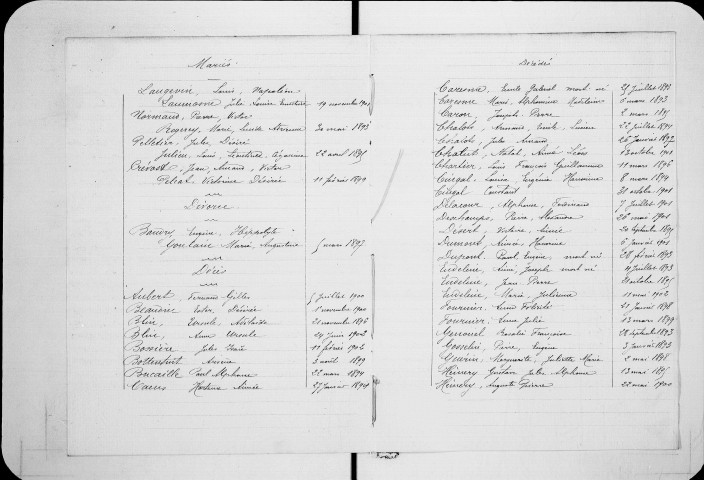 Mariés
Langevin, Louis, Napoléon
19 novembre 1901
Normand, Pierre, Victor
Marie, Louise 30 mai 1893
Pelletier, Jules Désiré
Julien, Louise 22 avril 1895
Prévost, Jean, Victor
Victorine Désirée 11 février 1899
Divorce
Baudry, Eugène, Hippolyte
Goulain Marie, Augustine 5 mars 1897
Décès
Aubert, Fernand Gilles 5 juillet 1900
Beaudire Victor, Désirée 1er novembre 1900
Blin, Ursule, Adélaïde 21 novembre 1896
Blin, Anne Ursule 24 juin 1902
Bossière Jules 11 février 1902
3 avril 1899
Boscaille Paul Alphonse 22 mars 1894
Caens Hortense Aimée 27 janvier 1894
Décédés
Caresme, Emile Gabriel mort-né 25 juillet 1893
Caresme Marie Alphonsine Madeleine 6 mars 1893
Caron, Joseph Pierre 2 mars 1895
Chalots, Armand, Emile, Lucien 22 juillet 1894
Chalots Jules Armand 26 janvier 1897
Chalots, Natal, Aimé Léon octobre 1901
Chartier, Louis François Guillaume 11 mars 1896
Ciirgal, Louise Eugénie 8 mars 1894
Ciirgal Constant 31 octobre 1901
Delacour Alphonse, Ferdinand 7 juillet 1901
Deschamps, Pierre, 26 mai 1901
Désert, Victoire, Aimée 20 septembre 1895
Dumont, Aimée, 6 janvier 1901
Dupont, Paul Eugène, mort né 28 février 1893
Eudeline, Aimé, Joseph mort né 4 juillet 1893
Eudeline, Jean Pierre octobre 1895
Eudeline, Marie, 11 mai 1902
Fournier, Aimée Félicité 21 janvier 1898
Fournier, Anna Julie 13 mars 1899
Rosalie Françoise 28 septembre 1893
Gosselin, Pierre Eugène 3 janvier 1893
Guérin, Marguerite, Juliette Marie 2 mai 1898
Gustave Jules Alphonse 13 mai 1895
Auguste Pierre 22 mai 1900